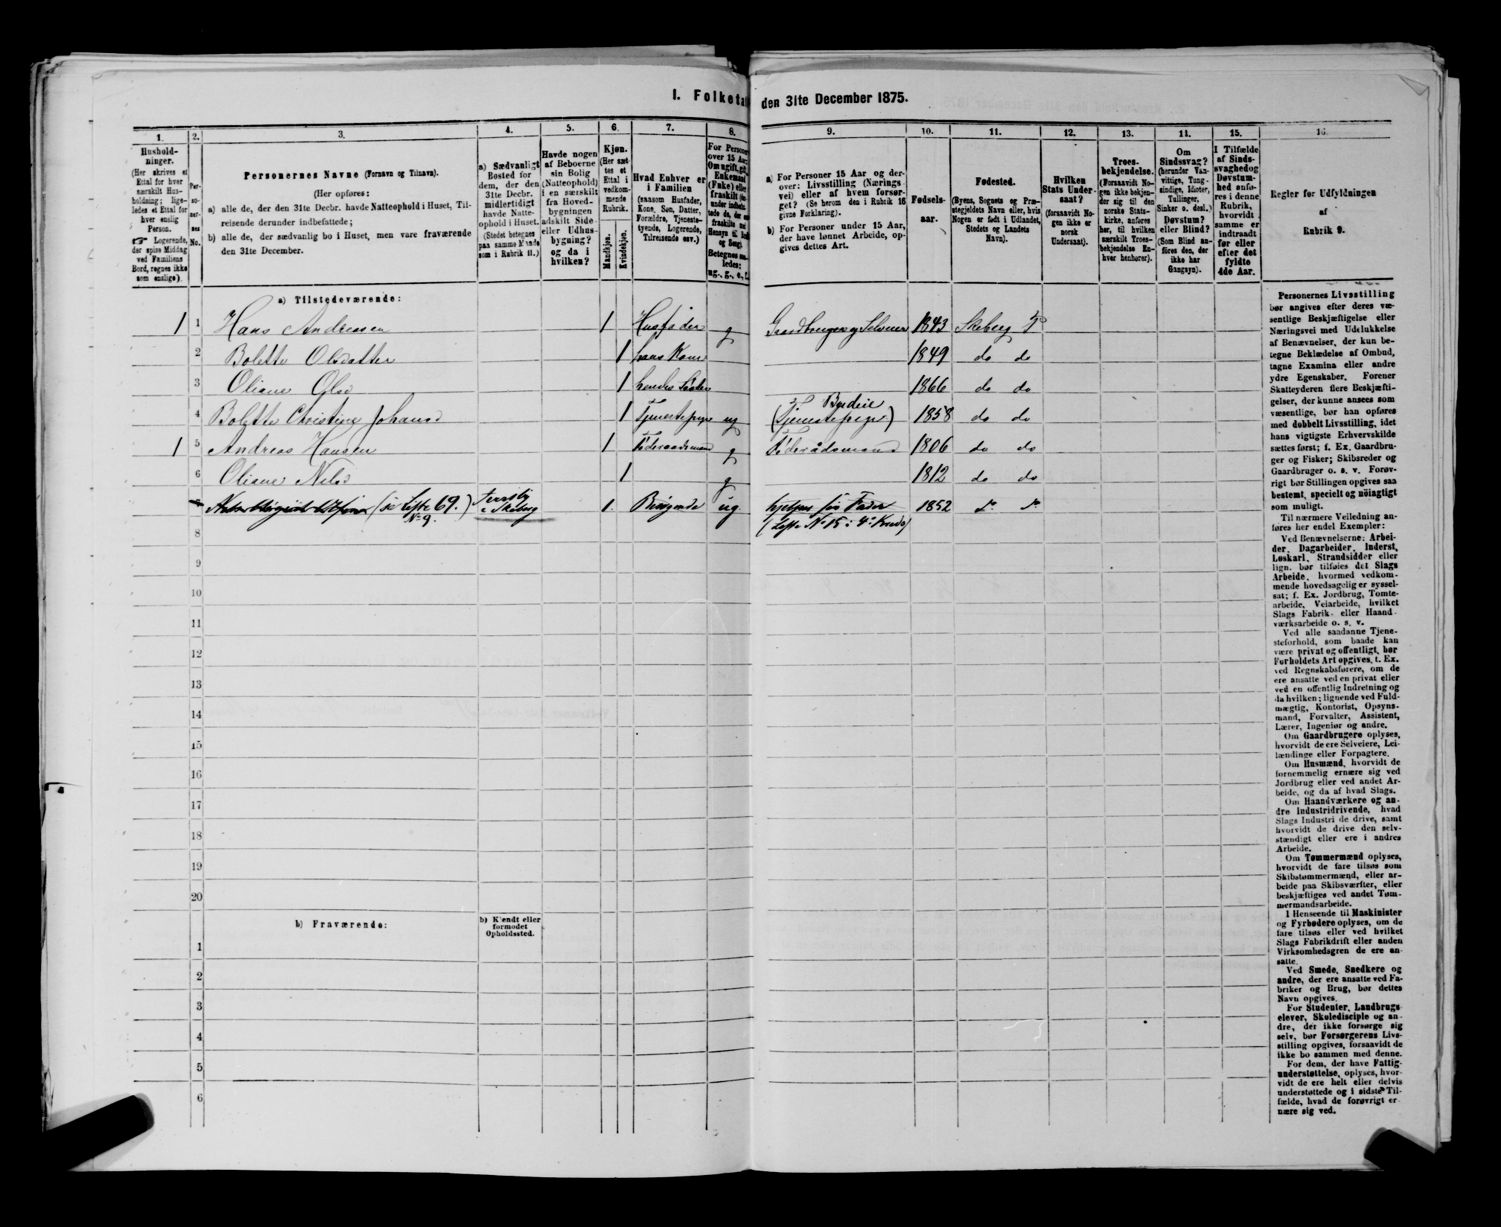 I. Folketa
den 31te December 1875.
1.
2.
3.
4.
5.
6.
7.
8.
9.
10.
11.
12.
13.
11.
15.
16.
Hushold-
ninger.
(Her skrives et
Ettal for hver
særskilt Hus-
holdning; lige-
ledes et Ettal
for hver
enslig
Person.
☞ Logerende,
der spise Middag
ved Familiens
Bord, regnes ikke
som enslige).
Per-
so-
ner-
nes
No.
Personernes Navne (Fornavn og Tilnavn).
(Her opføres:
a) alle de, der den 31te Decbr. havde Natteophold i Huset, Til-
reisende derunder indbefattede;
b) alle de, der sædvanlig bo i Huset, men vare fraværende
den 31te December.
a) Sædvanligt
Bosted for
dem, der den
31te Decbr.
midlertidigt
havde Natte-
ophold i Huset.
(Stedet betegnes
paa samme Maade
som i Rubrik 11.)
Havde nogen
af Beboerne
sin Bolig
(Natteophold)
i en særskilt
fra Hoved-
bygningen
adskilt Side-
eller Udhus-
bygning?
og da i
hvilken?
Kjøn.
(Her sæt-
tes et
Ettal i
vedkom-
mende
Rubrik.
Mandkjøn.
Kvindekjøn.
Hvad Enhver er
i Familien
(saasom Husfader,
Kone, Søn, Datter,
Forældre, Tjeneste-
tyende, Logerende,
Tilreisende osv.).
For Persone
over 15 Aa
Om ugift, gi
Enkemand
(Enke) elle
fraskilt
Betegnes
ledes:
ug., g., e., f.
a) For Personer 15 Aar og der-
over: Livsstilling (Nærings
vei) eller af hvem forsør-
get? (Se herom den i Rubrik 16
givne Forklaring).
b) For Personer under 15 Aar,
der have lønnet Arbeide, op-
gives dettes Art.
Fødsels-
aar.
Fødested.
(Byens, Sognets og Præ-
stegjeldets Navn eller, hvis
Nogen er født i Udlandet,
Stedets og Landets
Navn).
Hvilken
Stats Under-
saat?
(forsaavidt No-
gen ikke er
norsk
Undersaat).
Troes-
bekjendelse.
(Forsaavidt No-
gen ikke bekjen-
der sig til den
norske Stats-
kirke, anføres
her, til hvilken
særskilt Troes-
bekjendelse En-
hver henhører).
Om
Sindssvag?
(herunder Van-
vittige, Tung-
sindige, Idioter,
Tullinger,
Sinker o. desl.)
Døvstum?
eller Blind?
(Som Blind an-
føres den, der
ikke har
Gangsyn).
I Tilfælde
af Sinds-
svaghed og
Døvstum-
hed anfø-
res i denne
Rubrik,
hvorvidt
samme er
indtraadt
før eller
efter det
fyldte
4de Aar.
Regler for Udfyldningen
af
Rubrik 9.
a) Tilstedeværende:
1 1 Hans Andresen 1 Husfader g Gaardbruger og Selveier 1843 Skeberg P
2 Bolette Olsdatter 1 hans Kone 1849 do do
3 Oliane Olsd 1 hendes Søster 1866 do do
4 Bolette Christine Johansd 1 Tjenestepige ug (Tjenestepige) Budeie 1858 do do
1 5 Andreas Hansen 1 Føderaadsmand g Føderådsmand 1806 do do
6 Oliane Nilsd 1 g 1812 do do
(se Liste 69.) 1 Besøgende ug hjelper sin Fader 1852
No 9.
(Liste No 15 i 4de Kreds)
8
9
10
11
12
13
14
15
16
17
18
19
20
b) Fraværende:
b) Kjendt eller
formodet
Opholdssted.
1
2
3
4
5
6
Personernes Livsstilling
bør angives efter deres væ-
sentlige Beskjæftigelse eller
Næringsvei med Udelukkelse
af Benævnelser, der kun be-
tegne Beklædelse af Ombud,
tagne Examina eller andre
ydre Egenskaber. Forener
Skatteyderen flere Beskjæfti-
gelser, der kunne ansees som
væsentlige, bør han opføres
med dobbelt Livsstilling, idet
hans vigtigste Erhvervskilde
sættes først; f. Ex. Gaardbru-
ger og Fisker; Skibsreder og
Gaardbruger o. s. v. Forøv-
rigt bør Stillingen opgives saa
bestemt, specielt og nöiagtigt
som muligt.
Til nærmere Veiledning an-
føres her endel Exempler:
Ved Benævnelserne: Arbei-
der, Dagarbeider, Inderst,
Løskarl, Strandsidder eller
lign. bør tilføies det Slags
Arbeide, hvormed vedkom-
mende hovedsagelig er syssel-
sat; f. Ex. Jordbrug, Tomte-
arbeide, Veiarbeide, hvilket
Slags Fabrik- eller Haand-
værksarbeide o. s. v.
Ved alle saadanne Tjene-
steforhold, som baade kan
være privat og offentligt, bør
Forholdets Art opgives, t. Ex.
ved Regnskabsførere, om de
ere ansatte ved en privat eller
ved en offentlig Indretning og
da hvilken; lignende ved Fuld-
mægtig, Kontorist, Opsyns-
mand, Forvalter, Assistent,
Lærer, Ingeniør og andre.
Om Gaardbrugere oplyses,
hvorvidt de ere Selveiere, Lei-
lændinge eller Forpagtere.
Om Husmænd, hvorvidt de
fornemmelig ernære sig ved
Jordbrug eller ved andet Ar-
beide, og da af hvad Slags.
Om Haandværkere og an-
dre Industridrivende, hvad
Slags Industri de drive, samt
hvorvidt de drive den selv-
stændigt eller ere i andres
Arbeide.
Om Tømmermænd oplyses,
hvorvidt de fare tilsøs som
Skibstømmermænd, eller ar-
beide paa Skibsværfter, eller
beskjæftiges ved andet Tøm-
mermandsarbeide.
I Henseende til Maskinister
og Fyrbødere oplyses, om de
fare tilsøs eller ved hvilket
Slags Fabrikdrift eller anden
Virksomhedsgren de ere an-
satte.
Ved Smede, Snedkere og
andre, der ere ansatte ved Fa-
briker og Brug, bør dettes
Navn opgives.
For Studenter, Landbrugs-
elever, Skoledisciple og an-
dre, der ikke forsørge sig
selv, bør Forsørgerens Livs-
stilling opgives, forsaavidt de
ikke bo sammen med denne.
For dem, der have Fattig-
understøttelse, oplyses, hvor-
vidt de ere helt eller delvis
understøttede og i sidste Til-
fælde, hvad de forøvrigt er-
nære sig ved.